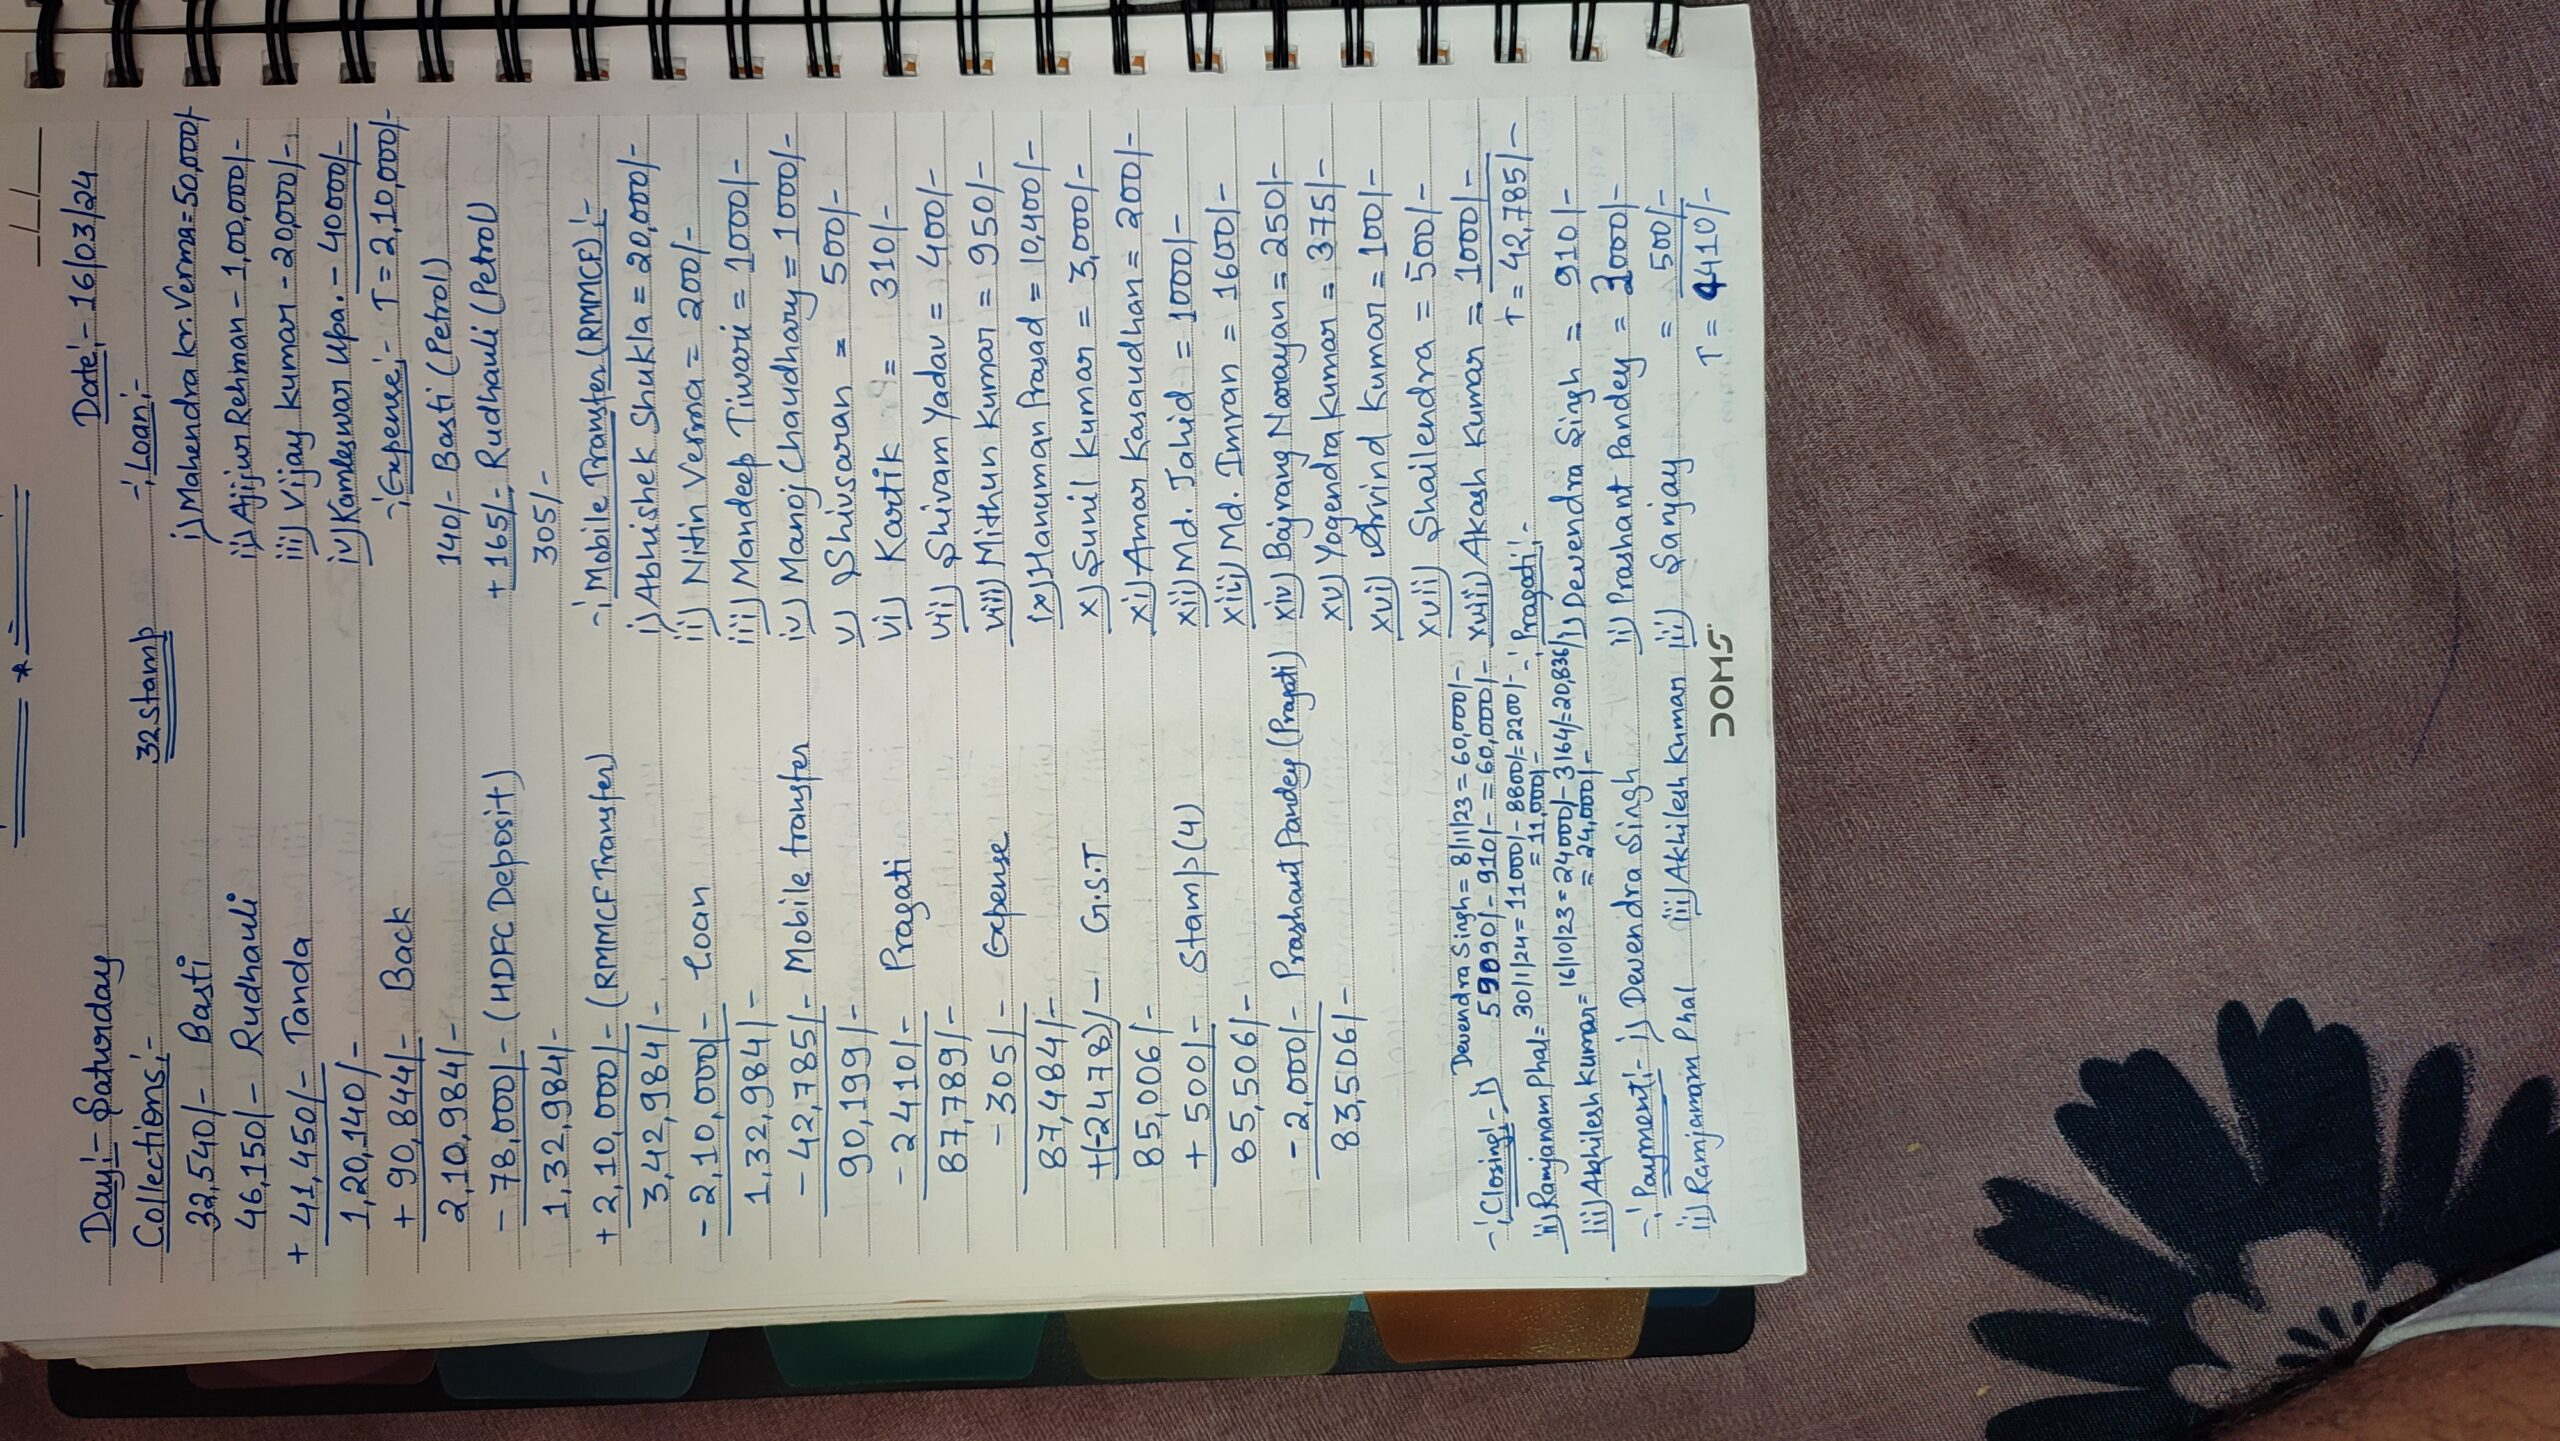 Day:- Saturday
Date:- 16/03/24
Collections:-
32 Stamp
-: Loan:-
32,540/- Basti
46,150/- Rudhauli
+ 41,450/- Tanda
1,20,140/-
+ 90,844/- Back
2,10,984/-
- 78,000/- (HDFC Deposit)
1,32,984/-
+ 2,10,000/- (RMMCF Transfer)
3,42,984/-
- 2,10,000/- Loan
1,32,984/-
- 42,785/- Mobile transfer
90,199/-
- 2410/- Pragati
87,789/-
- 305/- Expense
87,484/-
+(-2478)/- G.S.T
85,006/-
+ 500/- Stamp (4)
85,506/-
- 2,000/- Prashant Pandey (Pragati)
83,506/-
i) Mahendra kr. Verma = 50,000/-
ii) Ajijur Rehman - 1,00,000/-
iii) Vijay kumar - 20,000/-
iv) Kamleswar Upa. - 40000/-
T = 2,10,000/-
-: Expense:-
140/- Basti (Petrol)
+ 165/- Rudhauli (Petrol)
305/-
-: Mobile Transfer (RMMCF):-
i) Abhishek Shukla = 20,000/-
ii) Nitin Verma = 200/-
iii) Mandeep Tiwari = 1000/-
iv) Manoj Chaudhary = 1000/-
v) Shivsaran = 500/-
vi) Kartik = 310/-
vii) Shivam Yadav = 400/-
viii) Mithun Kumar = 950/-
ix) Hanuman Prasad = 10,400/-
x) Sunil Kumar = 3,000/-
xi) Amar Kasaudhan = 200/-
xii) Md. Jahid = 1000/-
xiii) Md. Imran = 1600/-
xiv) Bajrang Narayan = 250/-
xv) Yogendra Kumar = 375/-
xvi) Arvind Kumar = 100/-
xvii) Shailendra = 500/-
xviii) Akash Kumar = 1000/-
T = 42,785/-
-: Pragati:-
i) Devendra Singh = 910/-
ii) Prashant Pandey = 3000/-
iii) Sanjay = 500/-
T = 4410/-
-: Closing:- i) Devendra Singh = 8/11/23 = 60,000/-
59090/- - 910/- = 60,000/-
ii) Ramjanam Phal = 30/1/24 = 11000/- 8800/= 2200/-
= 11,000/-
iii) Akhilesh Kumar = 16/10/23 = 24000/- 3164/= 20,836/-
= 24,000/-
-: Payment:- i) Devendra Singh
ii) Ramjanam Phal iii) Akhilesh Kumar
DOMS